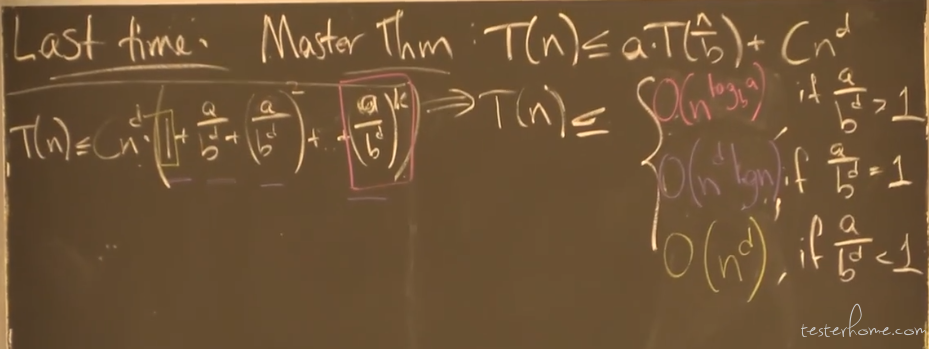 Last time. Master Thm : T(n) ≤ a·T(n/b) + Cn^d
T(n) ≤ Cn^d·(1 + a/b^d + (a/b^d)^2 + ·· + (a/b^d)^k) ⇒ T(n) ≤ { O(n^{log_b a}) if a/b^d > 1
O(n^d log n), if a/b^d = 1
O(n^d), if a/b^d < 1
testerhome.com